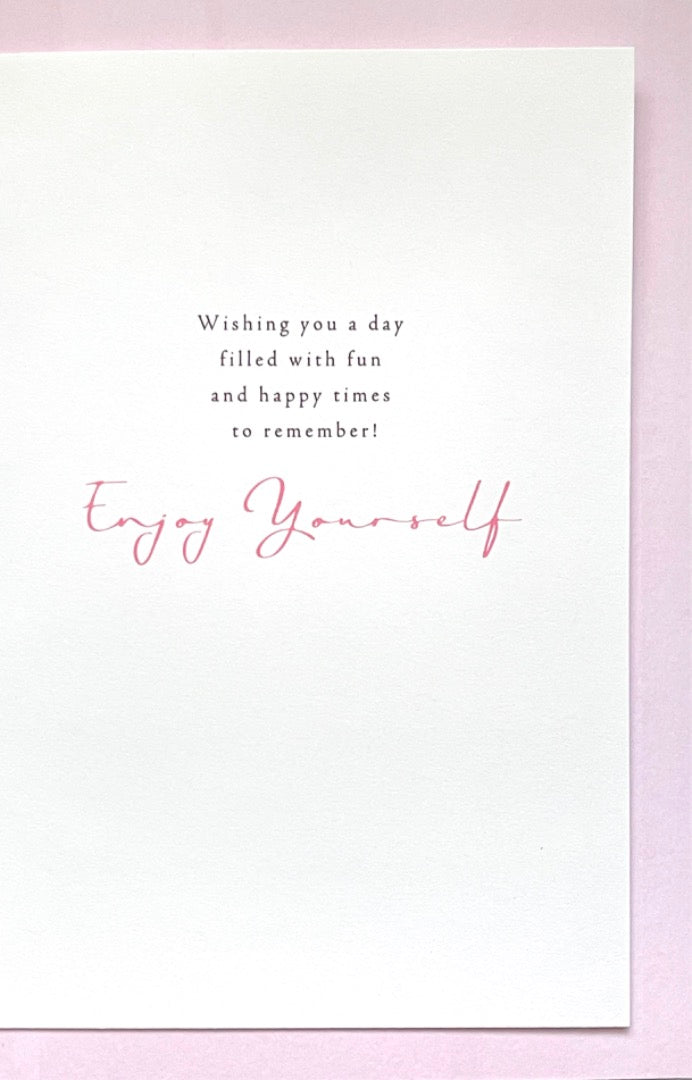 Wishing you a day
filled with fun
and happy times
to remember!
Enjoy Yourself